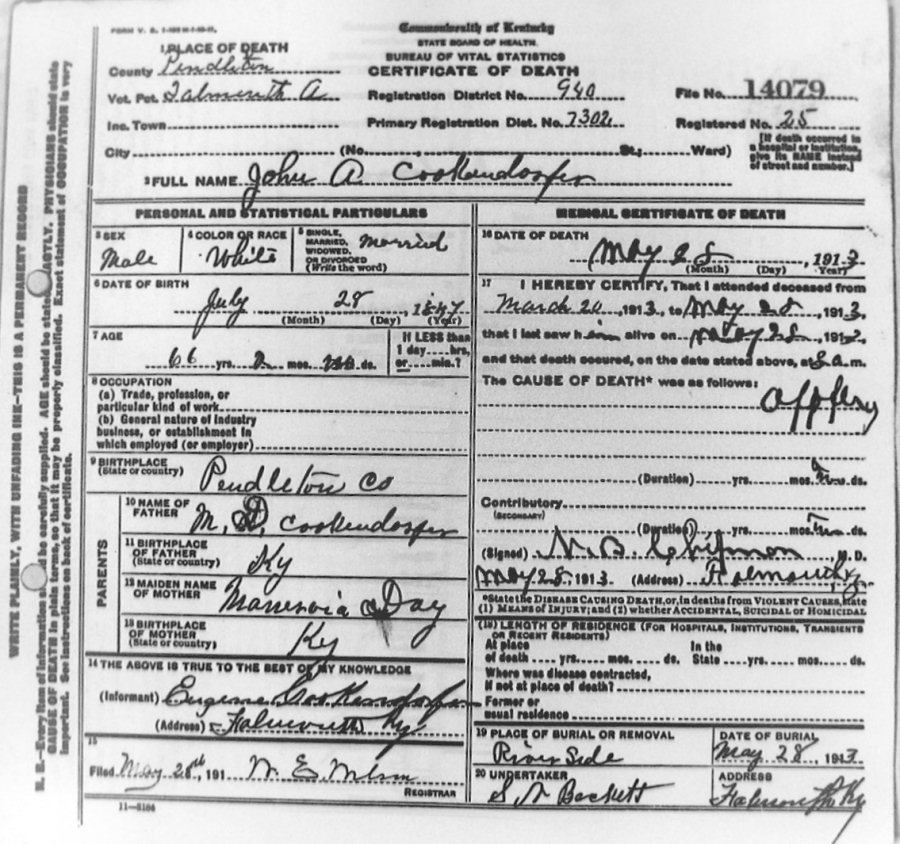 FORM V. S.
Commonwealth of Kentucky
STATE BOARD OF HEALTH.
BUREAU OF VITAL STATISTICS
CERTIFICATE OF DEATH
1 PLACE OF DEATH
County Pendleton
Vot. Pct. Falmouth A
Inc. Town
City (No. St.; Ward)
Registration District No. 940
Primary Registration Dist. No. 7302
File No. 14079
Registered No. 25
[If death occurred in
a hospital or institution,
give its NAME instead
of street and number.]
2 FULL NAME John A Cookendorfer
PERSONAL AND STATISTICAL PARTICULARS
3 SEX
Male
4 COLOR OR RACE
White
5 SINGLE,
MARRIED,
WIDOWED,
OR DIVORCED
(Write the word)
Married
6 DATE OF BIRTH
July 28, 1847
(Month) (Day) (Year)
7 AGE
66 yrs. mos. ds.
If LESS than
1 day.....hrs,
or.....min.?
8 OCCUPATION
(a) Trade, profession, or
particular kind of work
(b) General nature of industry
business, or establishment in
which employed (or employer)
9 BIRTHPLACE
(State or country)
Pendleton Co
PARENTS
10 NAME OF
FATHER
M. D. Cookendorfer
11 BIRTHPLACE
OF FATHER
(State or country)
Ky
12 MAIDEN NAME
OF MOTHER
Day
13 BIRTHPLACE
OF MOTHER
(State or country)
Ky
14 THE ABOVE IS TRUE TO THE BEST OF MY KNOWLEDGE
(Informant) Eugene Cookendorfer
(Address) Falmouth Ky
15
Filed May 28th, 191 W. E. Wilson
REGISTRAR
11-8184
MEDICAL CERTIFICATE OF DEATH
16 DATE OF DEATH
May 28, 1913
(Month) (Day) (Year)
17 I HEREBY CERTIFY, That I attended deceased from
March 20, 1913, to May 28, 1913,
that I last saw him alive on May 28, 1913,
and that death occured, on the date stated above, at 8 a.m.
The CAUSE OF DEATH* was as follows:
(Duration) yrs. mos. ds.
Contributory
(SECONDARY)
(Duration) yrs. mos. ds.
(Signed) N. B. Chipman M. D.
May 28, 1913 (Address) Falmouth, Ky.
*State the DISEASE CAUSING DEATH, or, in deaths from VIOLENT CAUSES, state
(1) MEANS OF INJURY; and (2) whether ACCIDENTAL, SUICIDAL or HOMICIDAL
(18) LENGTH OF RESIDENCE (FOR HOSPITALS, INSTITUTIONS, TRANSIENTS
OR RECENT RESIDENTS)
At place
of death yrs. mos. ds.
In the
State yrs. mos. ds.
Where was disease contracted,
if not at place of death?
Former or
usual residence
19 PLACE OF BURIAL OR REMOVAL
River Side
DATE OF BURIAL
May 28, 1913
20 UNDERTAKER
Beckett
ADDRESS
Falmouth Ky
WRITE PLAINLY, WITH UNFADING INK—THIS IS A PERMANENT RECORD
N. B.—Every item of information should be carefully supplied. AGE should be stated EXACTLY. PHYSICIANS should state
CAUSE OF DEATH in plain terms, so that it may be properly classified. Exact statement of OCCUPATION is very
important. See instructions on back of certificate.